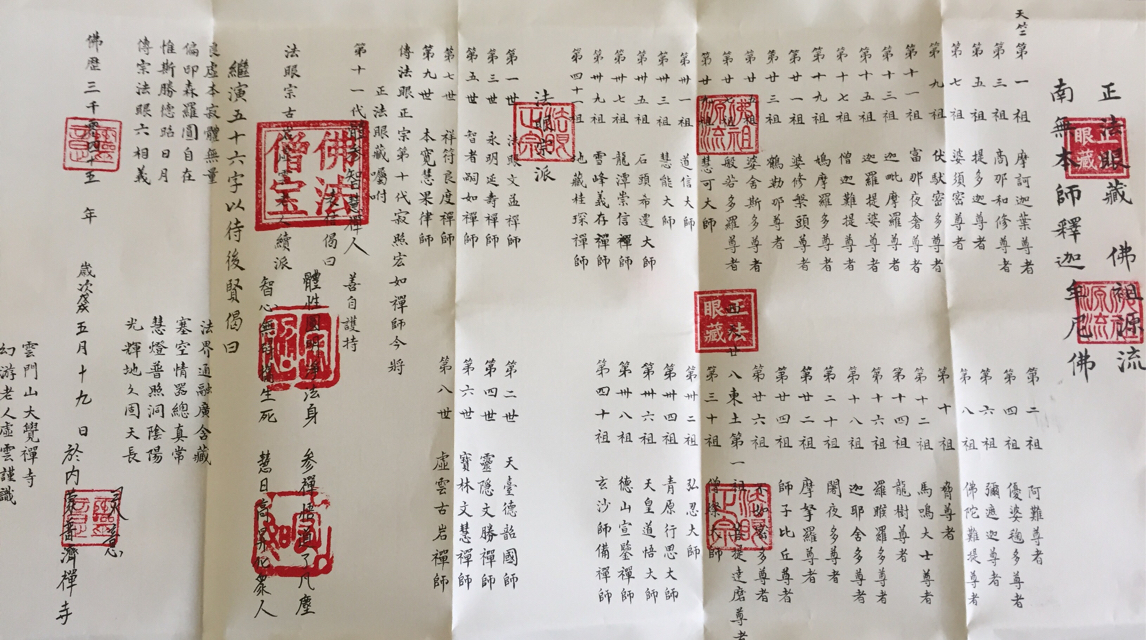 正法眼藏 佛祖源流
南無本師釋迦牟尼佛
天竺第一祖 摩訶迦葉尊者
第二祖 阿難尊者
第三祖 商那和修尊者
第四祖 優婆毱多尊者
第五祖 提多迦尊者
第六祖 彌遮迦尊者
第七祖 婆須密尊者
第八祖 佛陀難提尊者
第九祖 伏馱密多尊者
第十祖 脅尊者
第十一祖 富那夜奢尊者
第十二祖 馬鳴大士尊者
第十三祖 迦毗摩羅尊者
第十四祖 龍樹尊者
第十五祖 迦羅提婆尊者
第十六祖 羅睺羅多尊者
第十七祖 僧迦難提尊者
第十八祖 迦耶舍多尊者
第十九祖 鳩摩羅多尊者
第二十祖 闍夜多尊者
第廿一祖 婆修槃頭尊者
第廿二祖 摩拏羅尊者
第廿三祖 鶴勒那尊者
第廿四祖 師子比丘尊者
第廿五祖 婆舍斯多尊者
第廿六祖 不如密多尊者
第廿七祖 般若多羅尊者
第廿八東土第一祖 菩提達磨尊者
第廿九祖 慧可大師
第三十祖 僧璨大師
第卅一祖 道信大師
第卅二祖 弘忍大師
第卅三祖 慧能大師
第卅四祖 青原行思大師
第卅五祖 石頭希遷大師
第卅六祖 天皇道悟大師
第卅七祖 龍潭崇信禪師
第卅八祖 德山宣鑒禪師
第卅九祖 雪峰義存禪師
第四十祖 玄沙師備禪師
第四十一祖 地藏桂琛禪師
法眼宗派
第一世 法眼文益禪師
第二世 天臺德韶國師
第三世 永明延壽禪師
第四世 靈隱文勝禪師
第五世 智者嗣如禪師
第六世 寶林文慧禪師
第七世 祥符良度禪師
第八世 虛雲古岩禪師
第九世 本寬慧果律師
傳法眼正宗第十代寂照宏如禪師今將
正法眼藏囑咐
第十一代 智慧禪人 善自護持
偈曰
體性圓明 法身 參禪悟道了凡塵
智心無 生死 慧日當 化眾人
法眼宗古 人續派
繼演五十六字以待後賢偈曰
良虛本寂體無量 法界通融廣含藏
偏印森羅圓自在 塞空情器總真常
惟斯勝德昭日月 慧燈普照洞陰陽
傳宗法眼六相義 光輝地久固天長
佛歷三千零四十五年 歲次癸 五月十九日於內蒙普濟禪寺
雲門山大覺禪寺
幻游老人虛雲謹識
正法眼藏
佛祖源流
法眼正宗
佛法僧宝